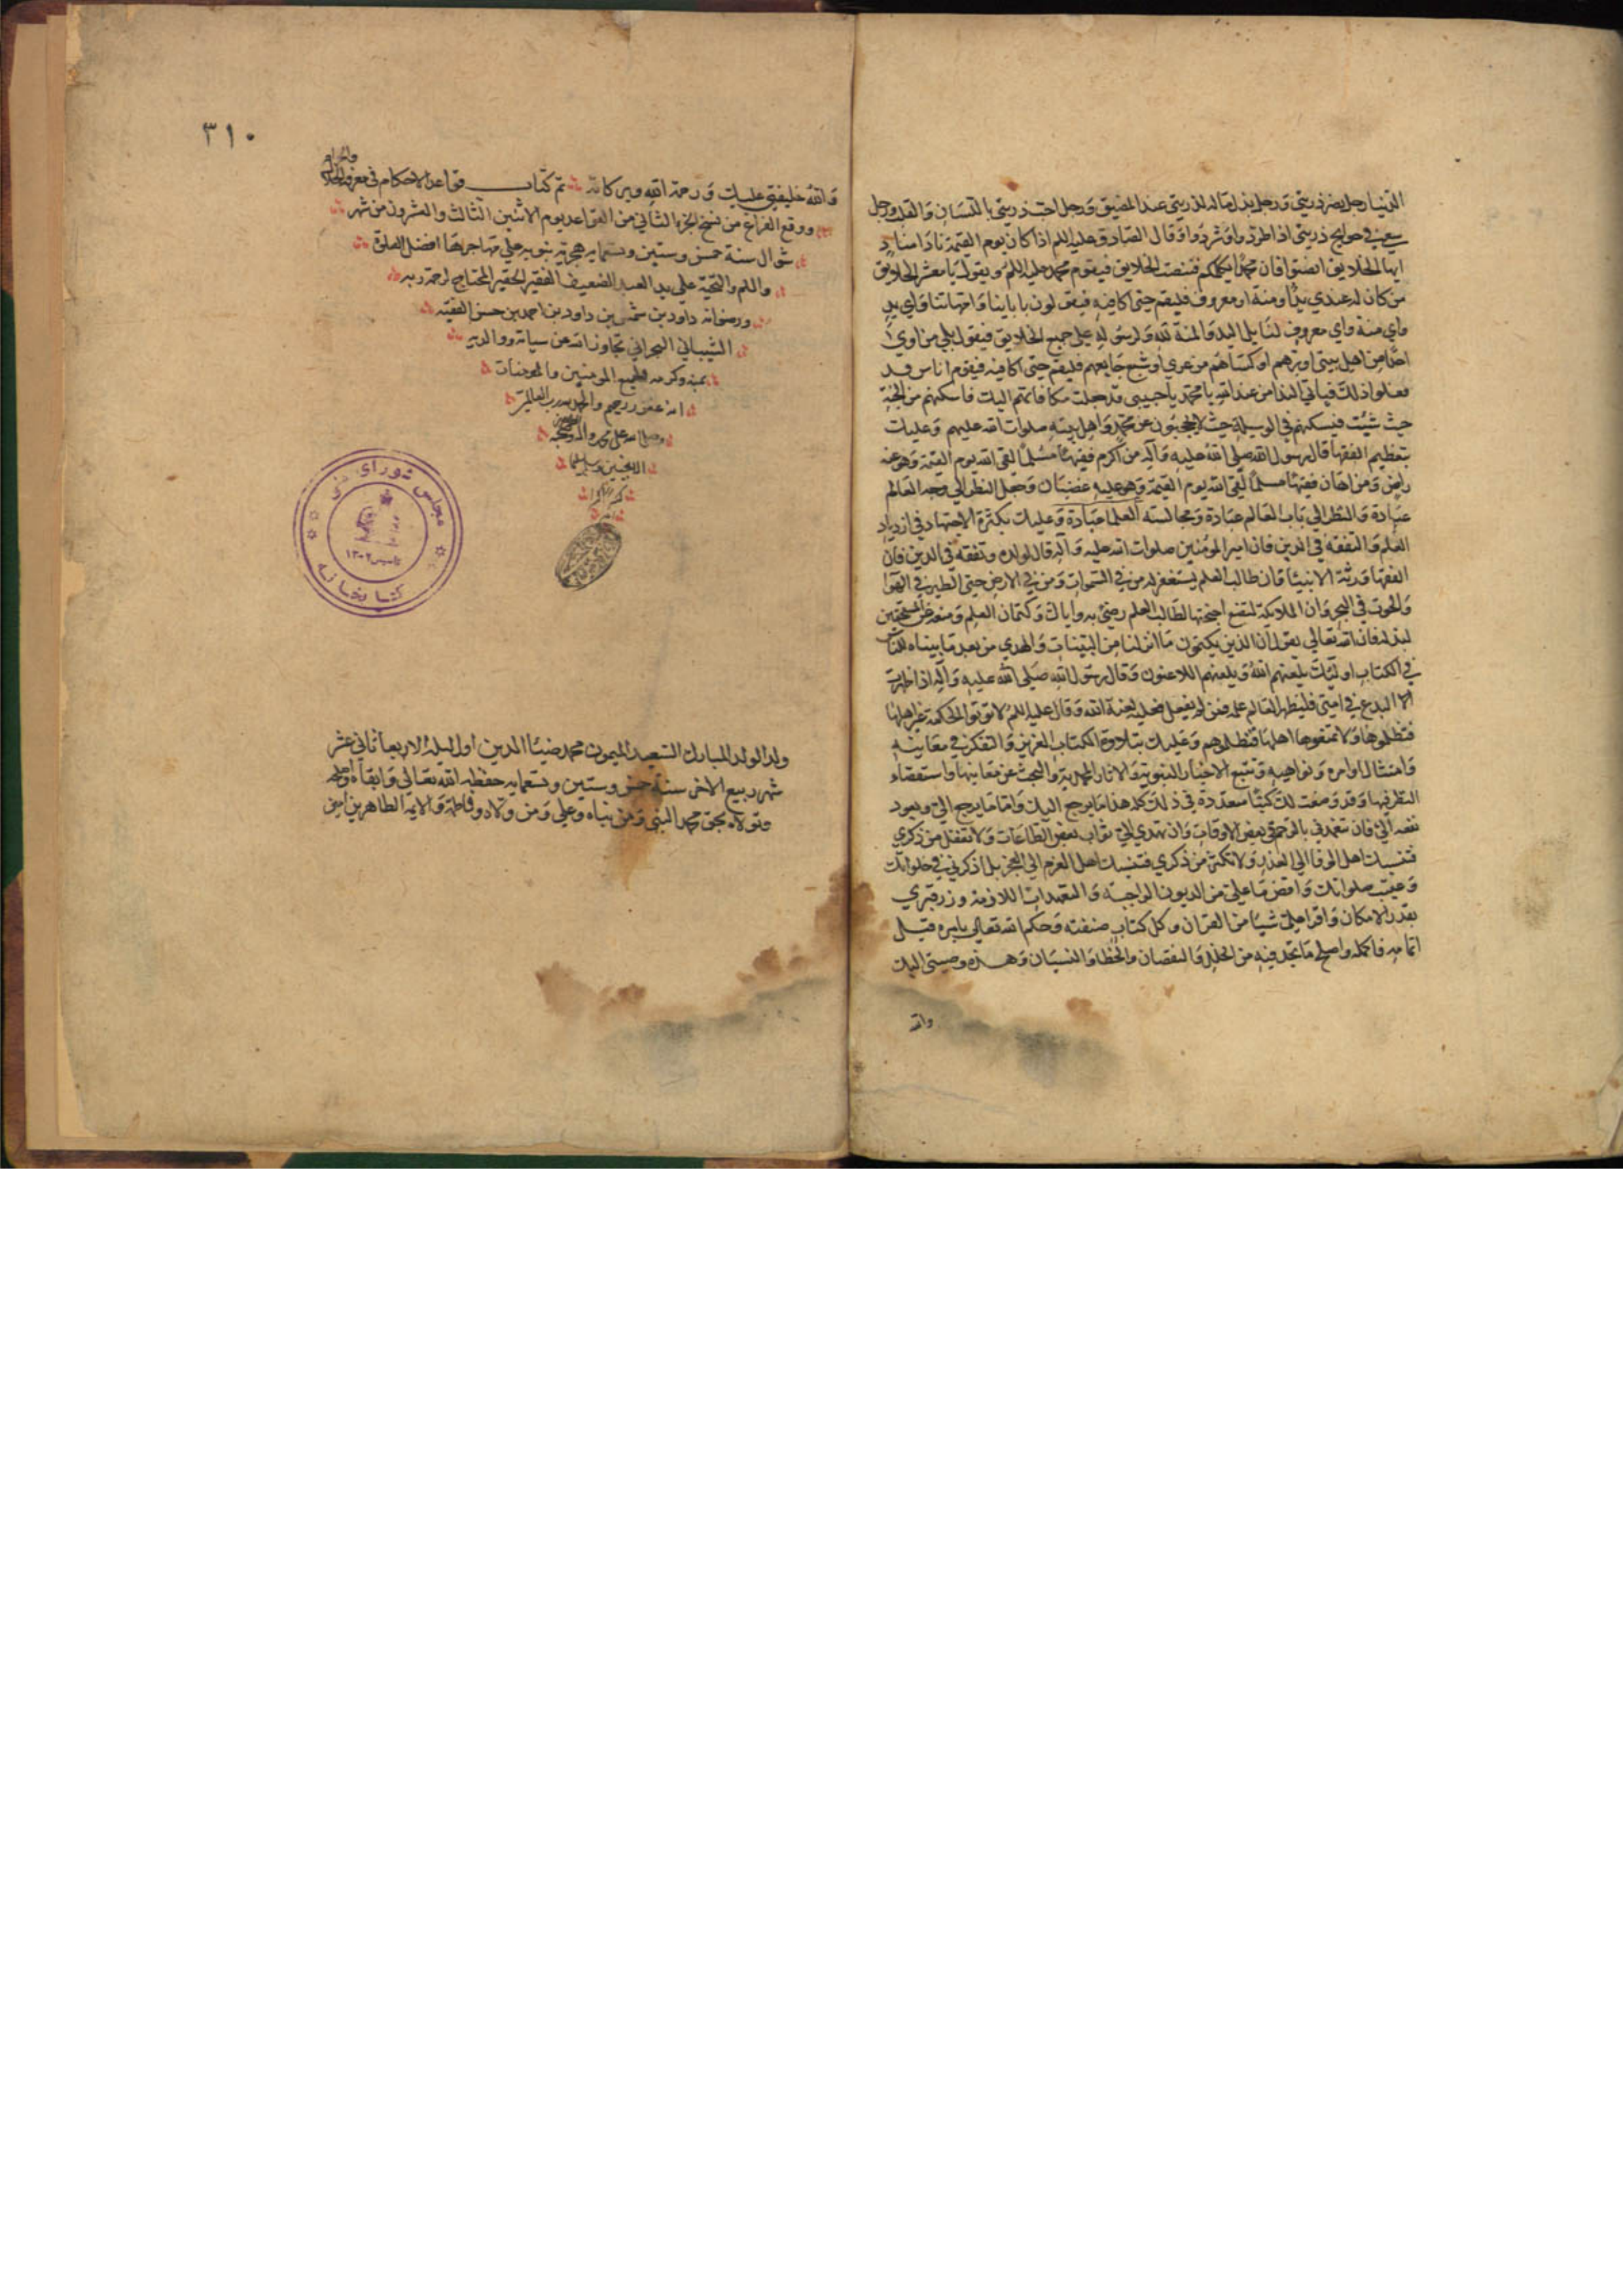 الدنيا رجل نصر ذريتي ورجل بذل ماله لذريتي عند المضيق ورجل احب ذريتي باللسان والقلب ورجل
سعى في حوايج ذريتي اذا طردوا وشردوا وقال الصادق عليه السلم اذا كان يوم القيمة نادا مناد
ايها الخلايق انصتوا فان محمدا يكلمكم فتنصت الخلايق فيقوم محمد عليه السلم ويقول يا معشر الخلايق
من كان له عندي يدا ومنة او معروف فليقم حتى اكافيه فيقولون بابائنا وامهاتنا واي يد
واي منة واي معروف لنا بل اليد والمنة لله ولرسوله على جميع الخلايق فيقول بلى من اوى
احدا من اهل بيتي او برهم او كساهم من عري او اشبع جايعهم فليقم حتى اكافيه فيقوم اناس قد
فعلوا ذلك فياتي النداء من عند الله يا محمد يا حبيبي قد جعلت مكافاتهم اليك فاسكنهم من الجنة
حيث شئت فيسكنهم في الوسيلة حيث لا يحجبون عن محمد واهل بيته صلوات الله عليهم وعليك
بتعظيم الفقها قال رسول الله صلى الله عليه وآله من اكرم فقيها مسلما لقى الله يوم القيمة وهو عنه
راض ومن اهان فقيها مسلما لقى الله يوم القيمة وهو عليه غضبان وجعل النظر الى وجه العالم
عبادة والنظر الى باب العالم عبادة ومجالسته العلما عبادة وعليك بكثرة الاجتهاد في ازدياد
العلم والتفقه في الدين فان امير المومنين صلوات الله عليه وآله قال لولده وتفقه في الدين فان
الفقها ورثة الانبيا وان طالب العلم يستغفر له من في السموات ومن في الارض حتى الطير في الهوا
والحوت في البحر وان الملايكة لتضع اجنحتها لطالب العلم رضى به واياك وكتمان العلم ومنعه عن المستحقين
لبذله فان الله تعالى يقول ان الذين يكتمون ما انزلنا من البينات والهدى من بعد ما بيناه للناس
في الكتاب اوليك يلعنهم الله ويلعنهم اللاعنون وقال رسول الله صلى الله عليه وآله اذا ظهرت
البدع في امتي فليظهر العالم علمه فمن لم يفعل فعليه لعنة الله وقال عليه السلم لا توتوا الحكمة غير اهلها
فتظلموها ولا تمنعوها اهلها فتظلموهم وعليك بتلاوة الكتاب العزيز والتفكر في معانيه
وامتثال اوامره ونواهيه وتتبع الاخبار النبوية والاثار المحمدية والبحث عن معانيها واستقصاء
النظر فيها وقد وضعت لك كتبا متعددة في ذلك كله هذا ما يرجع اليك واما ما يرجع الي ويعود
نفعه الي فان تتعهدني بالترحم في بعض الاوقات وان تهدي الي ثواب بعض الطاعات ولا تقلل من ذكري
فتنسبك اهل الوفا الى الغدر ولا تكثر من ذكري فتنسبك اهل العزم الى العجز بل اذكرني في خلواتك
وعقيب صلواتك واقض ما علي من الديون الواجبة والتعهدات اللازمة وزر قبري
بقدر الامكان واقرا علي شيا من القران وكل كتاب صنفته وحكم الله تعالى بامره قبل
اتمامه فاكمله واصلح ما تجد فيه من الخلل والنقصان والخطا والنسيان وهذه وصيتي اليك
والله
٣١٠
والله خليفتي عليك ورحمة الله وبركاته تم كتاب قواعد الاحكام في معرفة الحلال
والحرام
ووقع الفراغ من نسخ الجزء الثاني من القواعد يوم الاثنين الثالث والعشرون من شهر
شوال سنة خمس وستين وتسمايه هجرية نبويه على مهاجرها افضل الصلوة
والسلم والتحية على يد العبد الضعيف الفقير الحقير المحتاج لرحمة ربه
ورضوانه داود بن شمس بن داود بن احمد بن حسن الفقيه
الشيباني البحراني تجاوز الله عن سياته ووالديه
بمنه وكرمه وجميع المومنين والمومنات
انه غفور رحيم والحمد لله رب العالمين
وصلى الله على محمد واله وصحبه
اجمعين وسلم تسليما
مجلس شورای ملی
تاسیس ١٣٠٢
کتابخانه
ولد الولد المبارك السعيد الميمون محمد ضيا الدين اول ليلة الاربعا ثاني عشر
شهر ربيع الاخر سنة خمس وستين وتسعمايه حفظه الله تعالى وابقاه
وتولاه بحق محمد النبي ومن نباه وعلي ومن والاه وفاطمة والايمه الطاهرين امين